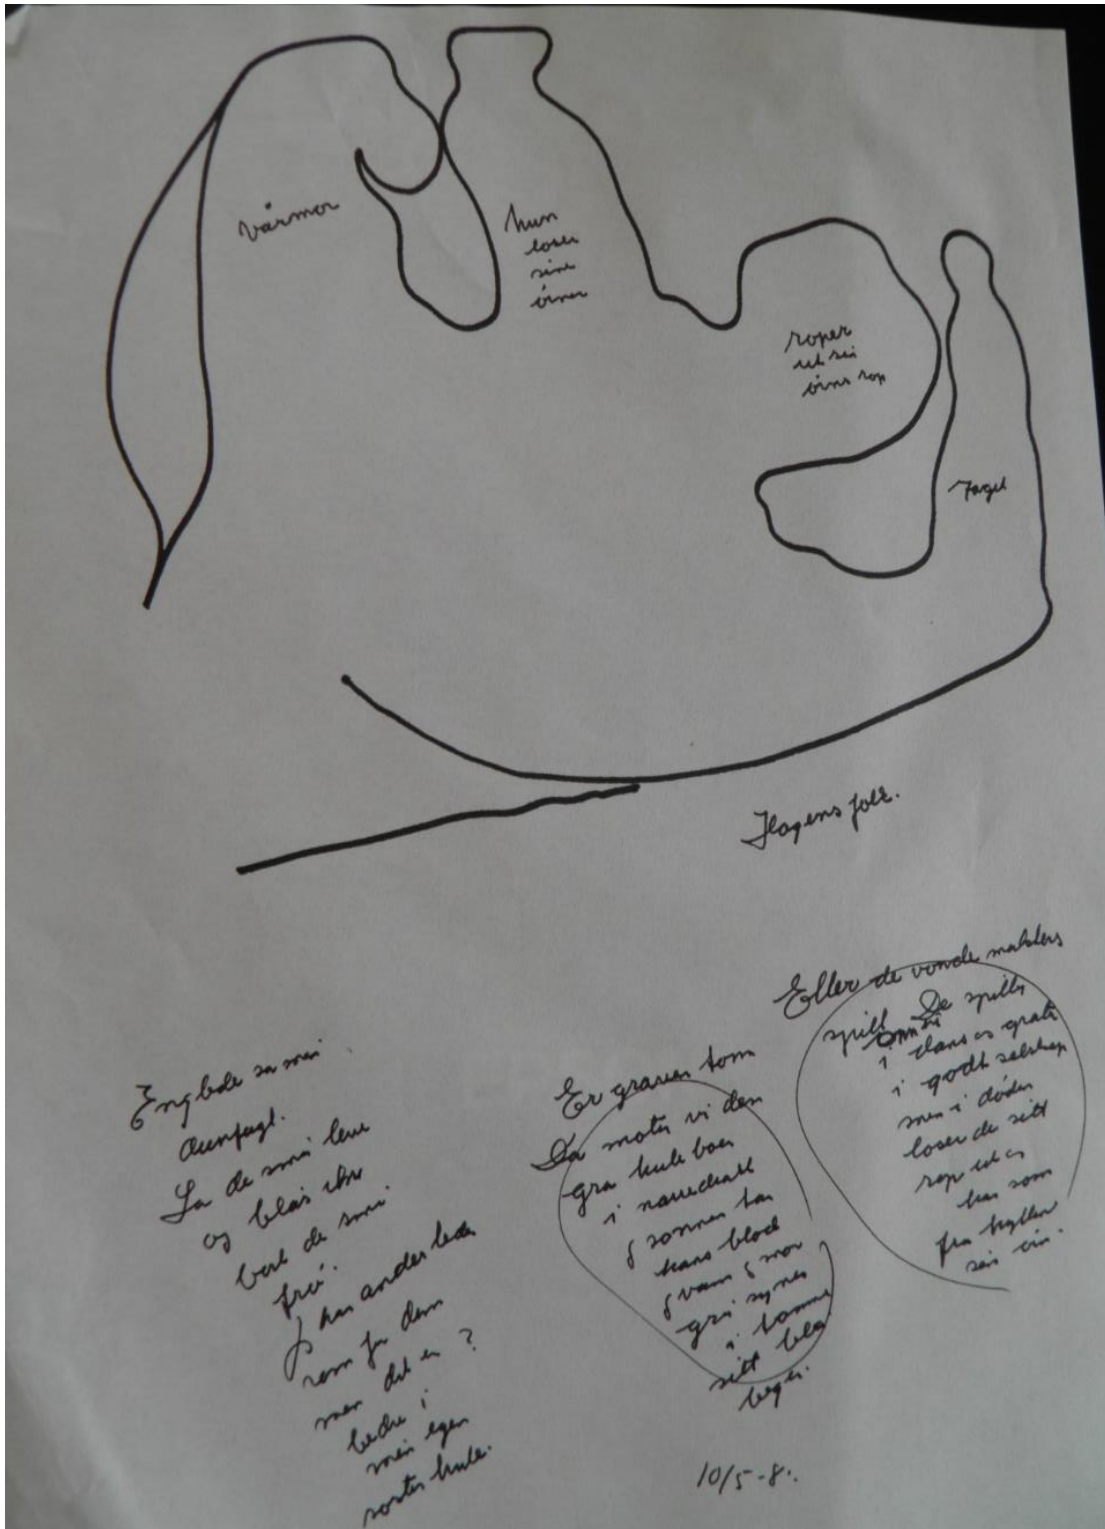 vårmor
hun
loser
sine
örner
roper
ut sin
örns rop
Fagel
Hagens folk.
dunfugl.
La de små leve
og blås ikke
bort de små
frö.
J har andes leder
rom for dem
men det er ?
bedre i
min egen
rosten hule.
Er graven tom
Da moter vi den
gra hule boer
i
J sonnen har
hans blod
J vann J mor
grå synes
i tomme
sitt blå
beger.
Eller de vonde makters
spill De spiller
i dans og gråt
i godt selskap
men i döden
loser de sitt
rop ut og
har som
för hyller
sin vin.
10/5-8.